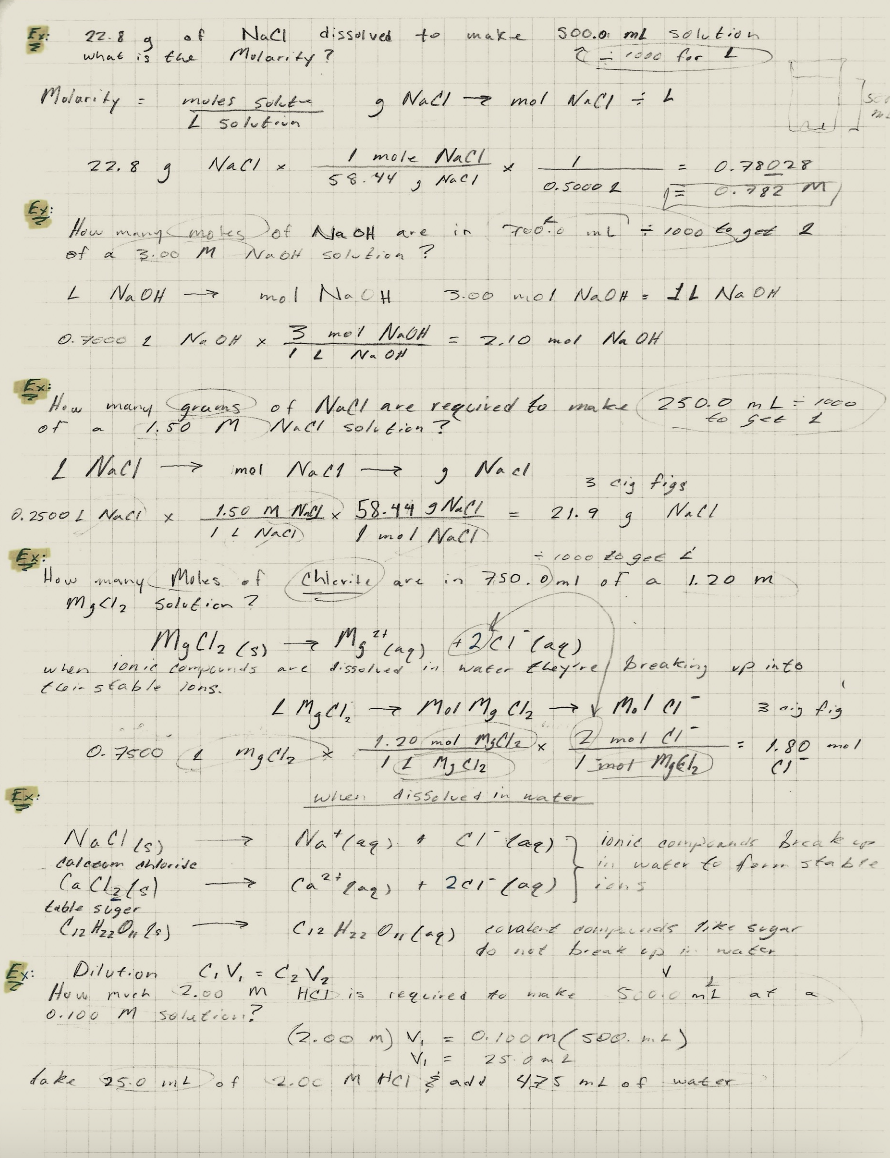 Ex: 22.8 g of NaCl dissolved to make 500.0 mL solution
what is the Molarity? ÷ 1000 for L
Molarity = moles solute / L solution g NaCl → mol NaCl ÷ L
22.8 g NaCl × 1 mole NaCl / 58.44 g NaCl × 1 / 0.5000 L = 0.78028
= 0.782 M
Ex:
How many moles of NaOH are in 700.0 mL ÷ 1000 to get L
of a 3.00 M NaOH solution?
L NaOH → mol NaOH 3.00 mol NaOH = 1L NaOH
0.7000 L NaOH × 3 mol NaOH / 1 L NaOH = 2.10 mol NaOH
Ex:
How many grams of NaCl are required to make 250.0 mL ÷ 1000
of a 1.50 M NaCl solution? to get L
L NaCl → mol NaCl → g Nacl
3 cig figs
0.2500 L NaCl × 1.50 M NaCl / 1 L NaCl × 58.44 g NaCl / 1 mol NaCl = 21.9 g NaCl
Ex: ÷ 1000 to get L
How many Moles of chloride are in 750.0 ml of a 1.20 m
MgCl2 solution?
MgCl2 (s) → Mg2+ (aq) + 2Cl- (aq)
when ionic compounds are dissolved in water they're breaking up into
their stable ions.
L MgCl2 → Mol MgCl2 → Mol Cl- 3 cig fig
0.7500 L MgCl2 × 1.20 mol MgCl2 / 1 L MgCl2 × 2 mol Cl- / 1 mol MgCl2 = 1.80 mol Cl-
Ex: when dissolved in water
NaCl (s) → Na+ (aq) + Cl- (aq) ionic compounds break up
calcium chloride in water to form stable
CaCl2 (s) → Ca2+ (aq) + 2Cl- (aq) ions
table suger
C12H22O11 (s) → C12H22O11 (aq) covalent compounds like sugar
do not break up in water
Ex: Dilution C1V1 = C2V2
How much 2.00 M HCl is required to make 500.0 mL at a
0.100 M solution?
(2.00 m) V1 = 0.100 m (500. mL)
V1 = 25.0 mL
take 25.0 mL of 2.00 M HCl & add 475 mL of water